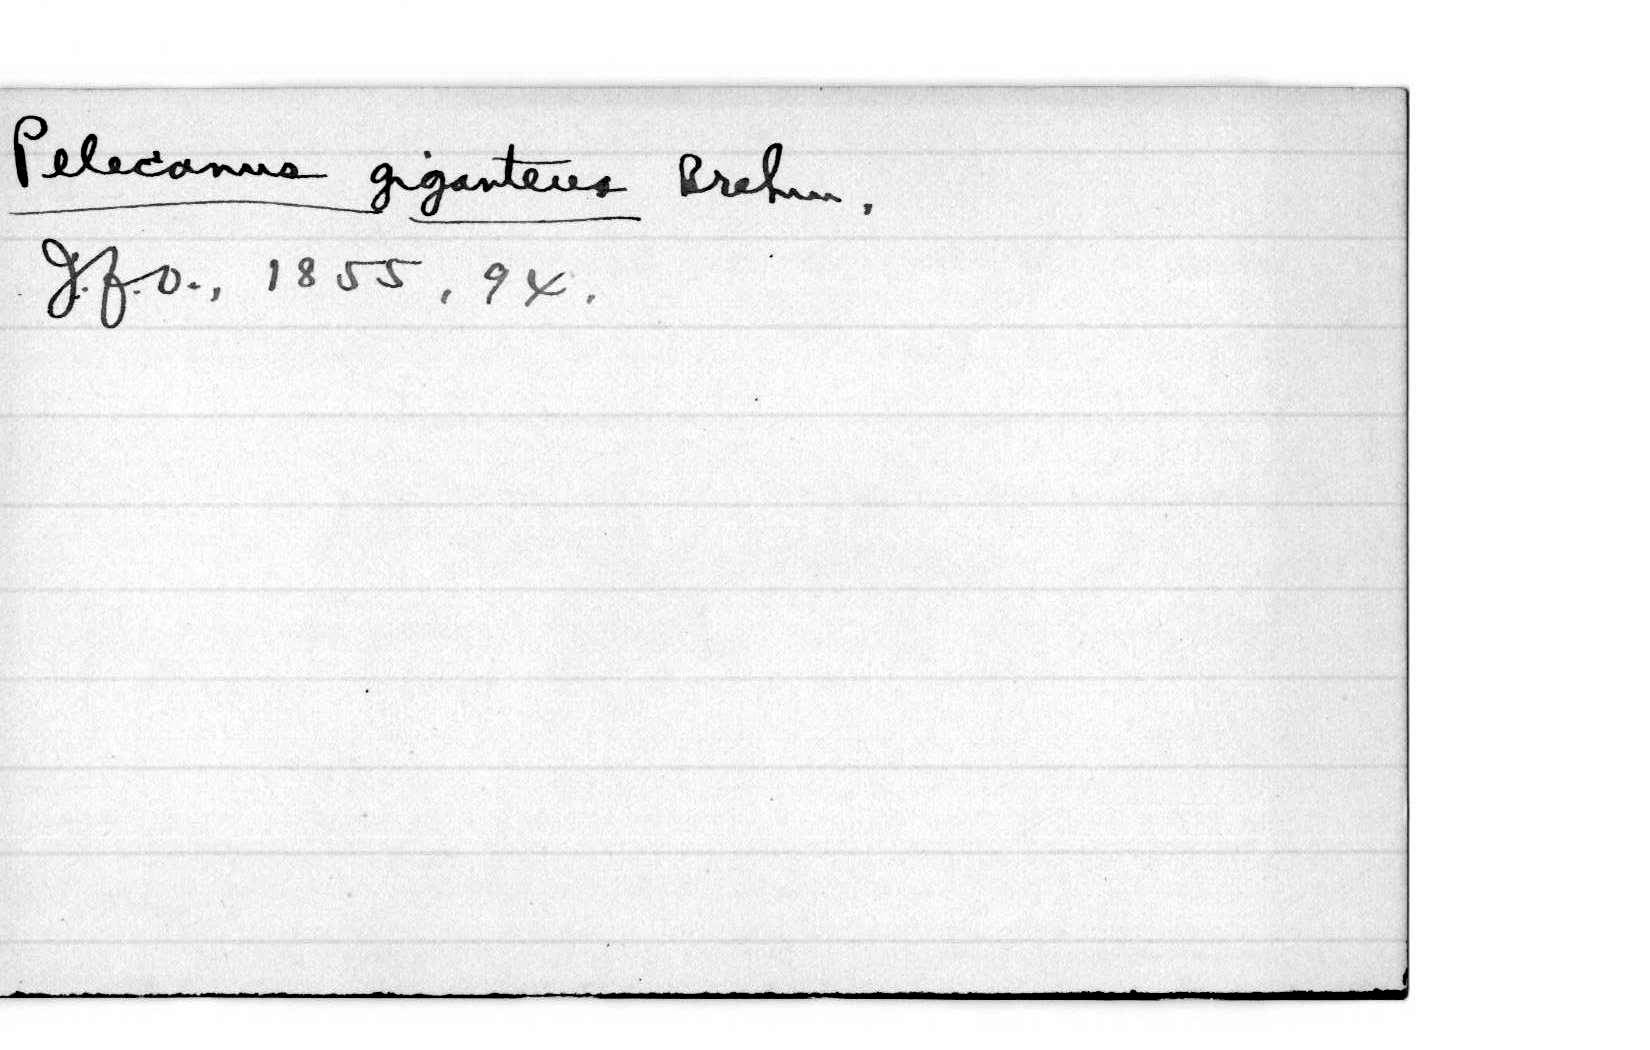 Pelecanus giganteus Brehm,
J.f.O., 1855, 94.